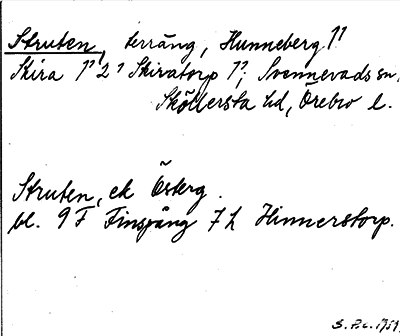 Struten, terräng, Hunneberg 1¹
Skira 1² 2¹ Skiratorp 1¹; Svennevads sn,
Sköllersta hd, Örebro l.
Struten, ek Österg.
bl. 9 F Finspång 7 h Hinnerstorp.